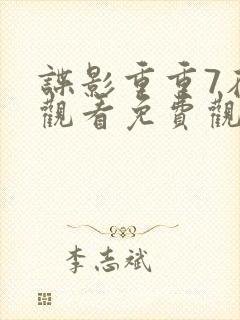 諜影重重7
觀看免費觀
李志斌